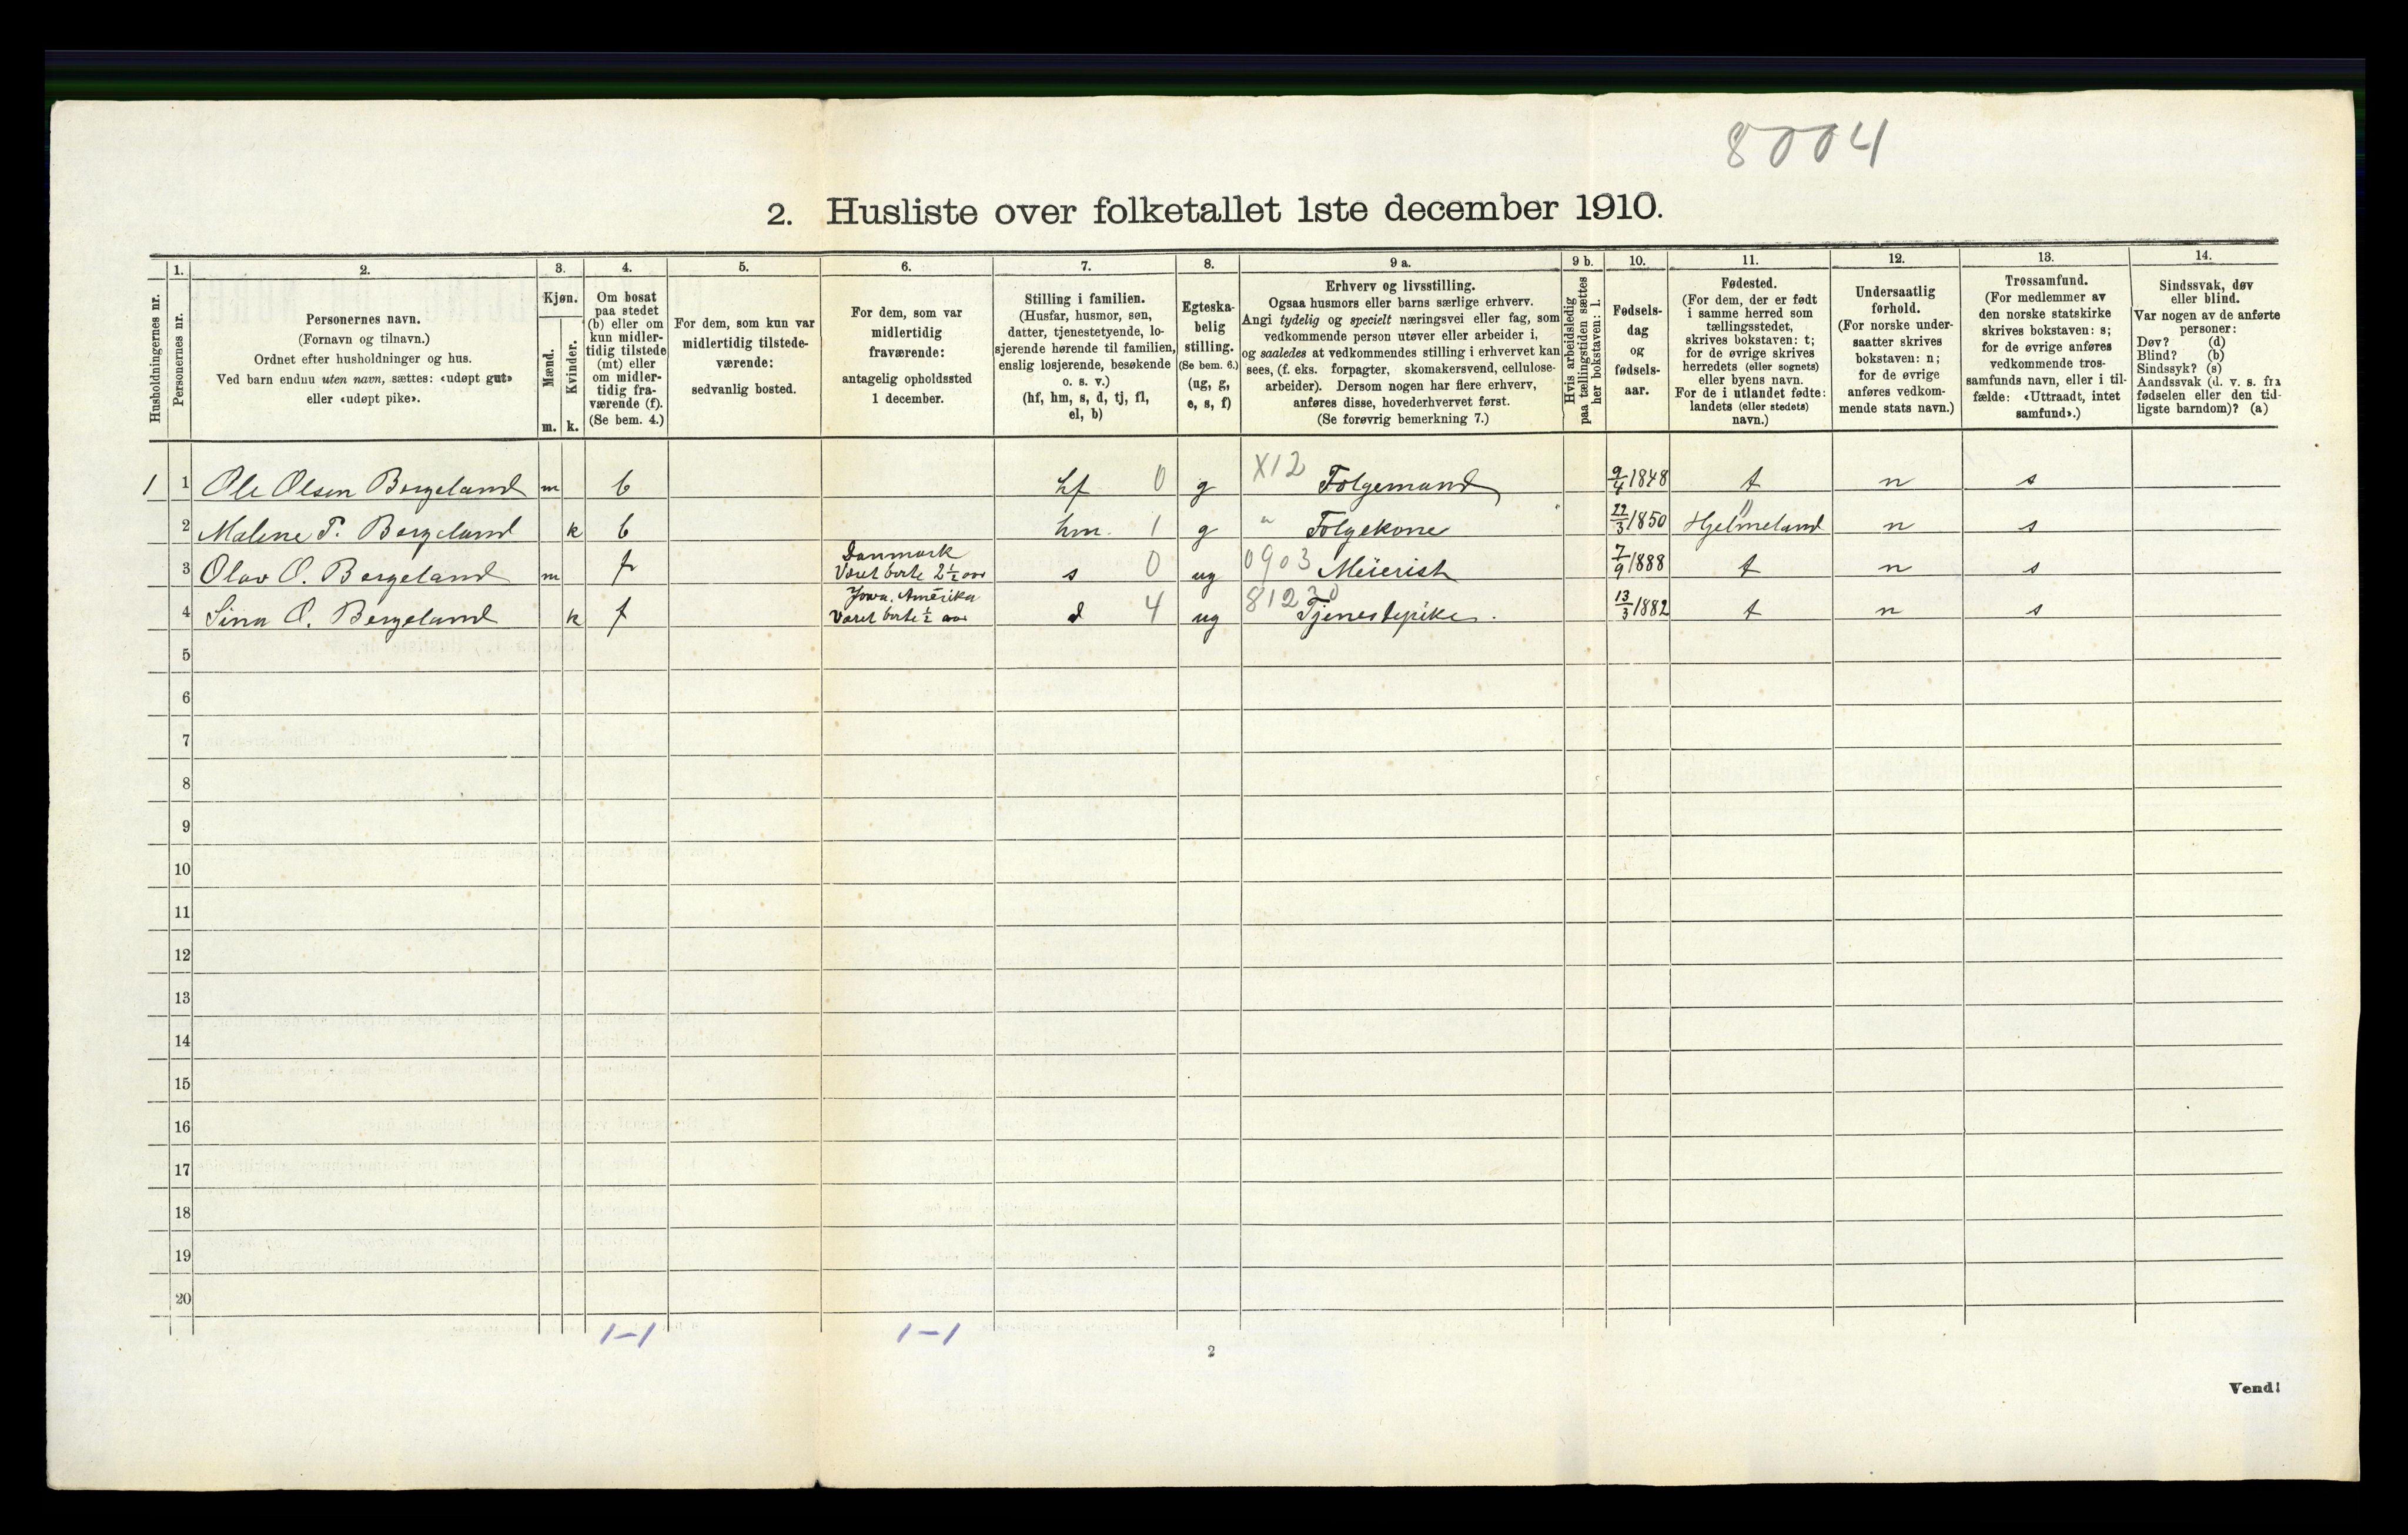 8004
2. Husliste over folketallet 1ste december 1910.
Husholdningernes nr.
1.
Personernes nr.
2.
Personernes navn.
(Fornavn og tilnavn.)
Ordnet efter husholdninger og hus.
Ved barn endnu uten navn, sættes: «udøpt gut»
eller «udøpt pike».
3.
Kjøn.
Mænd.
Kvinder.
m. k.
4.
Om bosat
paa stedet
(b) eller om
kun midler-
tidig tilstede
(mt) eller
om midler-
tidig fra-
værende (f).
(Se bem. 4.)
5.
For dem, som kun var
midlertidig tilstede-
værende:
sedvanlig bosted.
6.
For dem, som var
midlertidig
fraværende:
antagelig opholdssted
1 december.
7.
Stilling i familien.
(Husfar, husmor, søn,
datter, tjenestetyende, lo-
sjerende hørende til familien,
enslig losjerende, besøkende
o. s. v.)
(hf, hm, s, d, tj, fl,
el, b)
8.
Egteska-
belig
stilling.
(Se bem. 6.)
(ug, g,
e, s, f)
9 a.
Erhverv og livsstilling.
Ogsaa husmors eller barns særlige erhverv.
Angi tydelig og specielt næringsvei eller fag, som
vedkommende person utøver eller arbeider i,
og saaledes at vedkommendes stilling i erhvervet kan
sees, (f. eks. forpagter, skomakersvend, cellulose-
arbeider). Dersom nogen har flere erhverv,
anføres disse, hovederhvervet først.
(Se forøvrig bemerkning 7.)
9 b.
Hvis arbeidsledig
paa tællingstiden sættes
her bokstaven: l.
10.
Fødsels-
dag
og
fødsels-
aar.
11.
Fødested.
(For dem, der er født
i samme herred som
tællingsstedet,
skrives bokstaven: t;
for de øvrige skrives
herredets (eller sognets)
eller byens navn.
For de i utlandet fødte:
landets (eller stedets)
navn.)
12.
Undersaatlig
forhold.
(For norske under-
saatter skrives
bokstaven: n;
for de øvrige
anføres vedkom-
mende stats navn.)
13.
Trossamfund.
(For medlemmer av
den norske statskirke
skrives bokstaven: s;
for de øvrige anføres
vedkommende tros-
samfunds navn, eller i til-
fælde: «Uttraadt, intet
samfund».)
14.
Sindssvak, døv
eller blind.
Var nogen av de anførte
personer:
Døv? (d)
Blind? (b)
Sindssyk? (s)
Aandssvak (d. v. s. fra
fødselen eller den tid-
ligste barndom)? (a)
1 1 Ole Olsen Bergeland m b hf 0 g X12 Følgemand 9/4 1848 t n s
2 Malene T. Bergeland k b hm. 1 g " Følgekone 22/3 1850 Hjelmeland n s
3 Olav O. Bergeland m f Danmark
Været borte 2 1/2 aar s 0 ug 0903 Meierist 7/9 1888 t n s
4 Sina O. Bergeland k f Jowa. Amerika
Været borte 1/2 aar d 4 ug 8123 0 Tjenestepike. 13/3 1882 t n s
5
6
7
8
9
10
11
12
13
14
15
16
17
18
19
20
1-1 1-1
2
Vend!